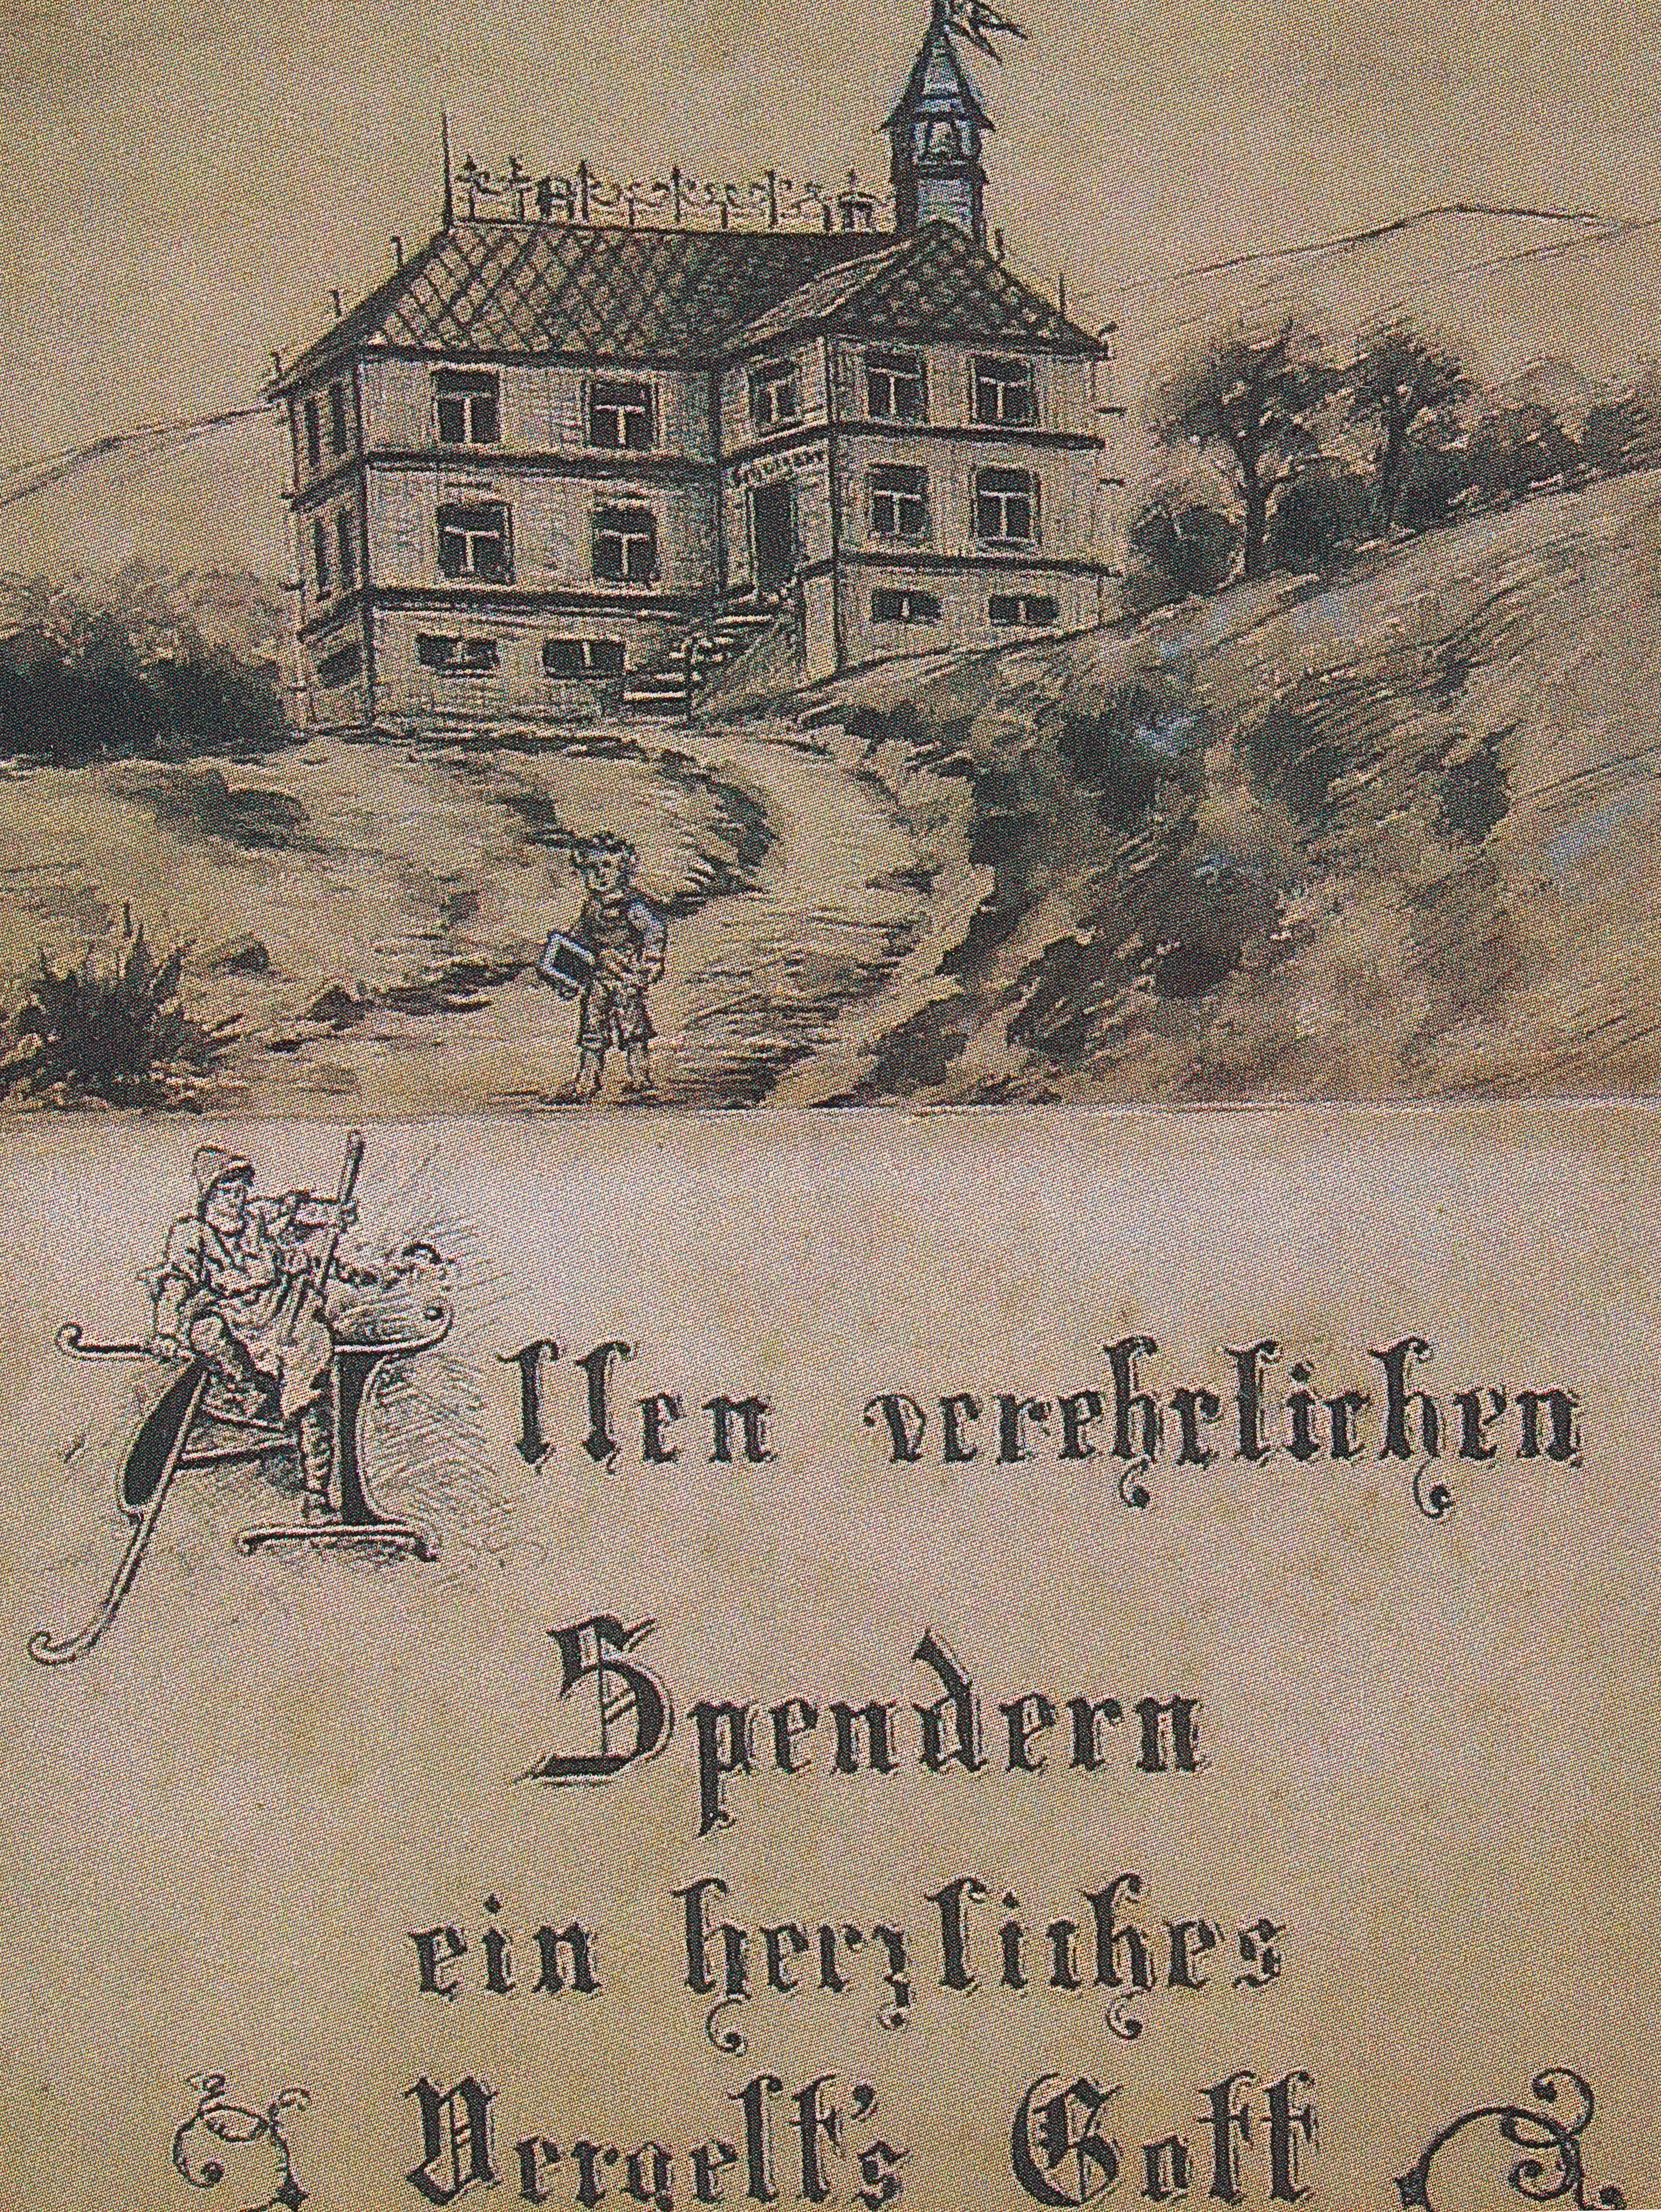 Allen verehrlichen
Spendern
ein herzliches
Vergelt's Gott